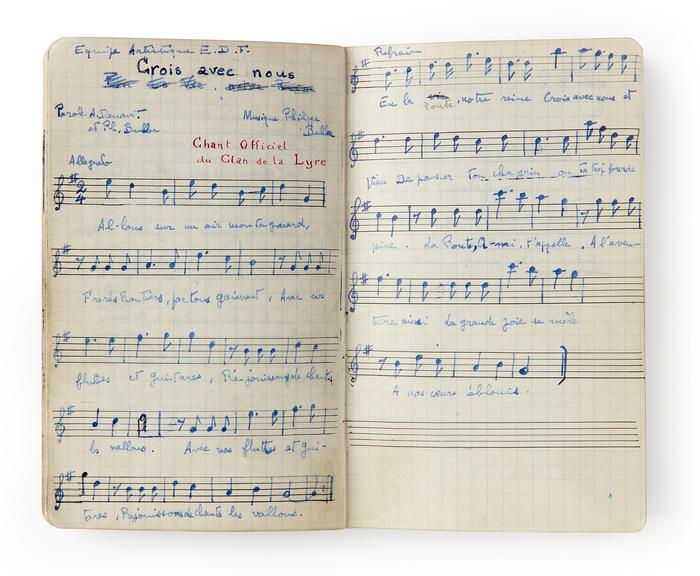 Equipe Artistique E.D.F.
Crois avec nous
Parole A. Devait Musique Philippe
et Ph. Buller Buller
Chant Officiel
du Clan de la Lyre
Allegreto
2 4
Al-lons sur un air montagnard,
Freres Routiers, partons gaiment, Avec nos
fluttes et guitares, Réjouissons de chants
les vallons. Avec nos fluttes et gui-
tares, Rejouissons de chants les vallons.
Refrain
En la route, notre reine Crois avec nous et
viens De passer ton chagrin ou ta trop
peine. La Route, A-mi, t'appelle. A l'aven-
ture ainsi la grande joie se mêle
A nos cœurs éblouis.